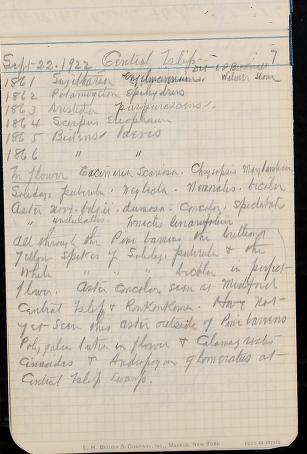 Sept-22-1922 Central Islip- 7
1861 Sagittaria Engelmanniana
1862 Potamogeton Epihydrus
1863 Aristida purpurascens.
1864 Scirpus Eriophorum
1865 Bidens laevis
1866 " "
In flower Chrysopsis Mariana
Solidago puberula. neglecta. Nemoralis. bicolor
Aster novi-belgii. dumosa. Concolor, spectabilis
" undulatus. linariifolius
All through the Pine barrens the
yellow spikes of Solidago puberula & the
white " " " bicolor in perfect
flower. Aster concolor seen at Medford
Central Islip & Ronkonkoma. Have not-
yet-seen this aster outside of Pine barrens
Polygala lutea in flower & Calamagrostis
Cinnoides & Andropogon glomeratus at-
Central Islip swamp.